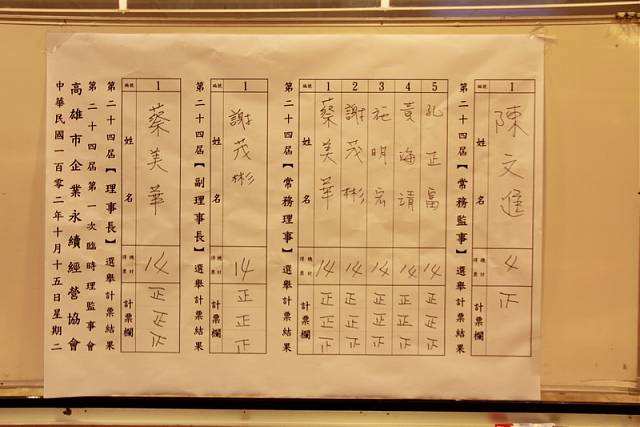 中華民國一百零二年十月十五日星期二
高雄市企業永續經營協會
第二十四屆第一次臨時理監事會
第二十四屆【理事長】選舉計票結果
編號 姓名 計票欄
1 蔡美華 14 正正
第二十四屆【副理事長】選舉計票結果
編號 姓名 計票欄
1 謝茂彬 14 正正
第二十四屆【常務理事】選舉計票結果
編號 姓名 計票欄
1 蔡美華 14 正正
2 謝茂彬 14 正正
3 施明宏 14 正正
4 黃海靖 14 正正
5 孔正富 14 正正
第二十四屆【常務監事】選舉計票結果
編號 姓名 計票欄
1 陳文進 4